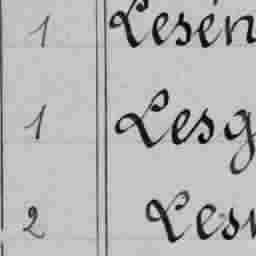 1 Lesen
1 Lesg
2 Les